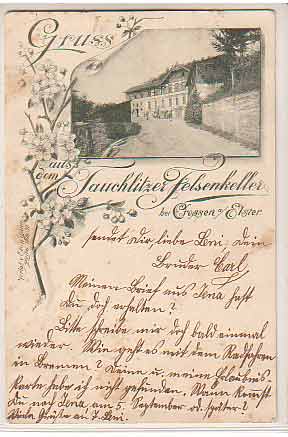 Gruss
aus
dem
Tauchlitzer Felsenkeller
bei Crossen a/ Elster
sendet Dir liebe Leni, Dein
Bruder Carl,
Meinen Brief aus Jena hast
Du doch erhalten?
Bitte schreibe mir doch bald einmal
wieder. Wie geht es mit dem Radfahren
in Bremen? Deine u. meine
karte habe ich nicht gefunden. Wann kommst
Du nach Jena am 5. September od. später?
Viele Grüsse an